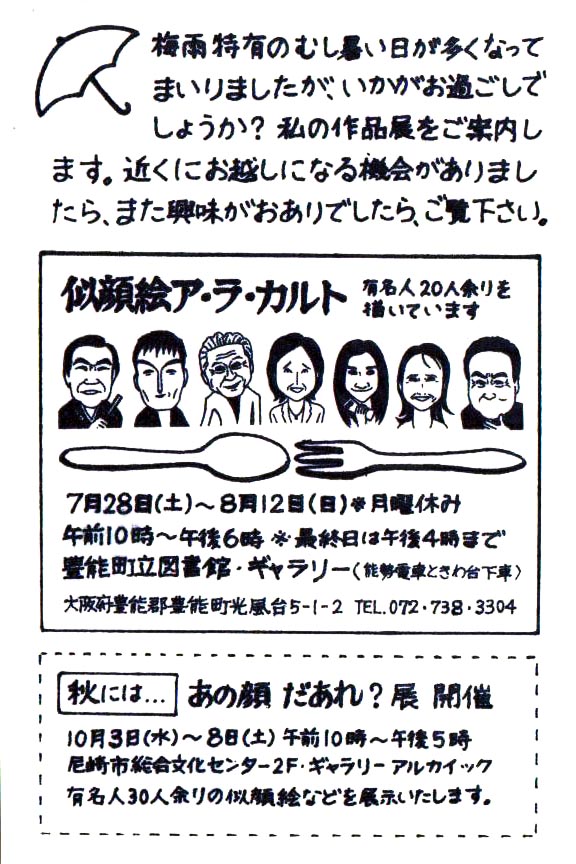 梅雨特有のむし暑い日が多くなって
まいりましたが、いかがお過ごしで
しょうか？ 私の作品展をご案内し
ます。近くにお越しになる機会がありまし
たら、また興味がおありでしたら、ご覧下さい。
似顔絵ア・ラ・カルト
有名人20人余りを
描いています
7月28日(土)～8月12日(日)※月曜休み
午前10時～午後6時 ※最終日は午後4時まで
豊能町立図書館・ギャラリー(能勢電車ときわ台下車)
大阪府豊能郡豊能町光風台5-1-2 TEL.072・738・3304
秋には... あの顔 だあれ？展 開催
10月3日(水)～8日(土) 午前10時～午後5時
尼崎市総合文化センター2F・ギャラリー アルカイック
有名人30人余りの似顔絵などを展示いたします。